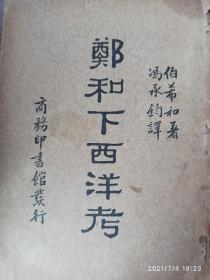 伯希和著
馮承鈞譯
鄭和下西洋考
商務印書館發行
2021/7/4 18:23:29